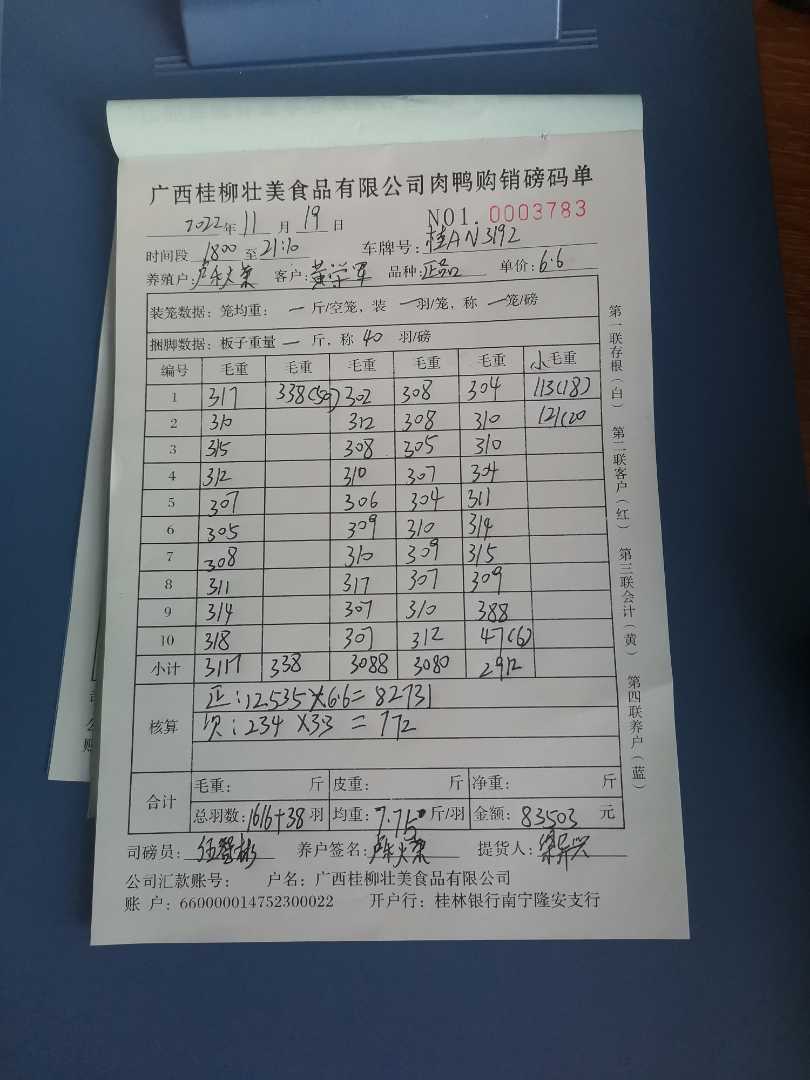 广西桂柳壮美食品有限公司肉鸭购销磅码单
2022年11月19日 NO1.0003783
时间段 1800 至 21:10 车牌号: 桂AN3192
养殖户: 客户: 黄学军 品种: 正品 单价: 6.6
装笼数据: 笼均重: 一 斤/空笼, 装 一 羽/笼, 称 一 笼/磅
捆脚数据: 板子重量 一 斤, 称 40 羽/磅
编号 毛重 毛重 毛重 毛重 毛重 小毛重
1 317 338(50) 302 308 304 113(18)
2 310 312 308 310 121(20
3 315 308 305 310
4 312 310 307 304
5 307 306 304 311
6 305 309 310 314
7 308 310 309 315
8 311 317 307 309
9 314 307 310 388
10 318 307 312 47(6)
小计 3117 338 3088 3080 2912
核算
正:12.535×6.6=82731
次:234×3.3=772
合计
毛重: 斤 皮重: 斤 净重: 斤
总羽数: 1616+38 羽 均重: 7.75 斤/羽 金额: 83503 元
司磅员: 养户签名: 提货人:
公司汇款账号: 户名: 广西桂柳壮美食品有限公司
账 户: 660000014752300022 开户行: 桂林银行南宁隆安支行
第一联存根(白) 第二联客户(红) 第三联会计(黄) 第四联养户(蓝)